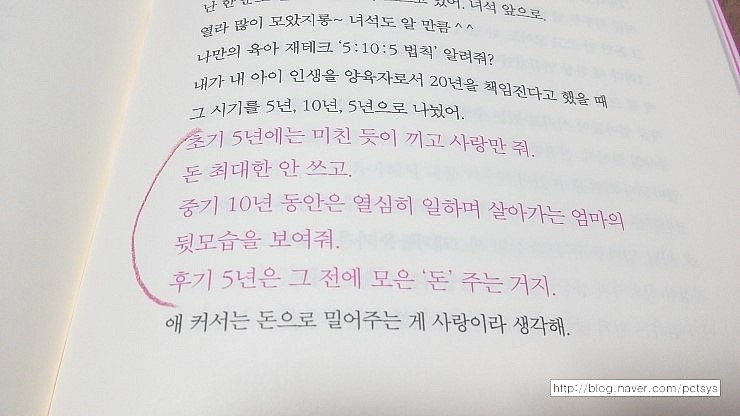 난 한 있어. 녀석 앞으로.
열라 많이 모았지롱~ 녀석도 알 만큼^^
나만의 육아 재테크 '5:10:5 법칙' 알려줘?
내가 내 아이 인생을 양육자로서 20년을 책임진다고 했을 때
그 시기를 5년, 10년, 5년으로 나눴어.
초기 5년에는 미친 듯이 끼고 사랑만 줘.
돈 최대한 안 쓰고.
중기 10년 동안은 열심히 일하며 살아가는 엄마의
뒷모습을 보여줘.
후기 5년은 그 전에 모은 '돈' 주는 거지.
애 커서는 돈으로 밀어주는 게 사랑이라 생각해.
http://blog.naver.com/pctsys